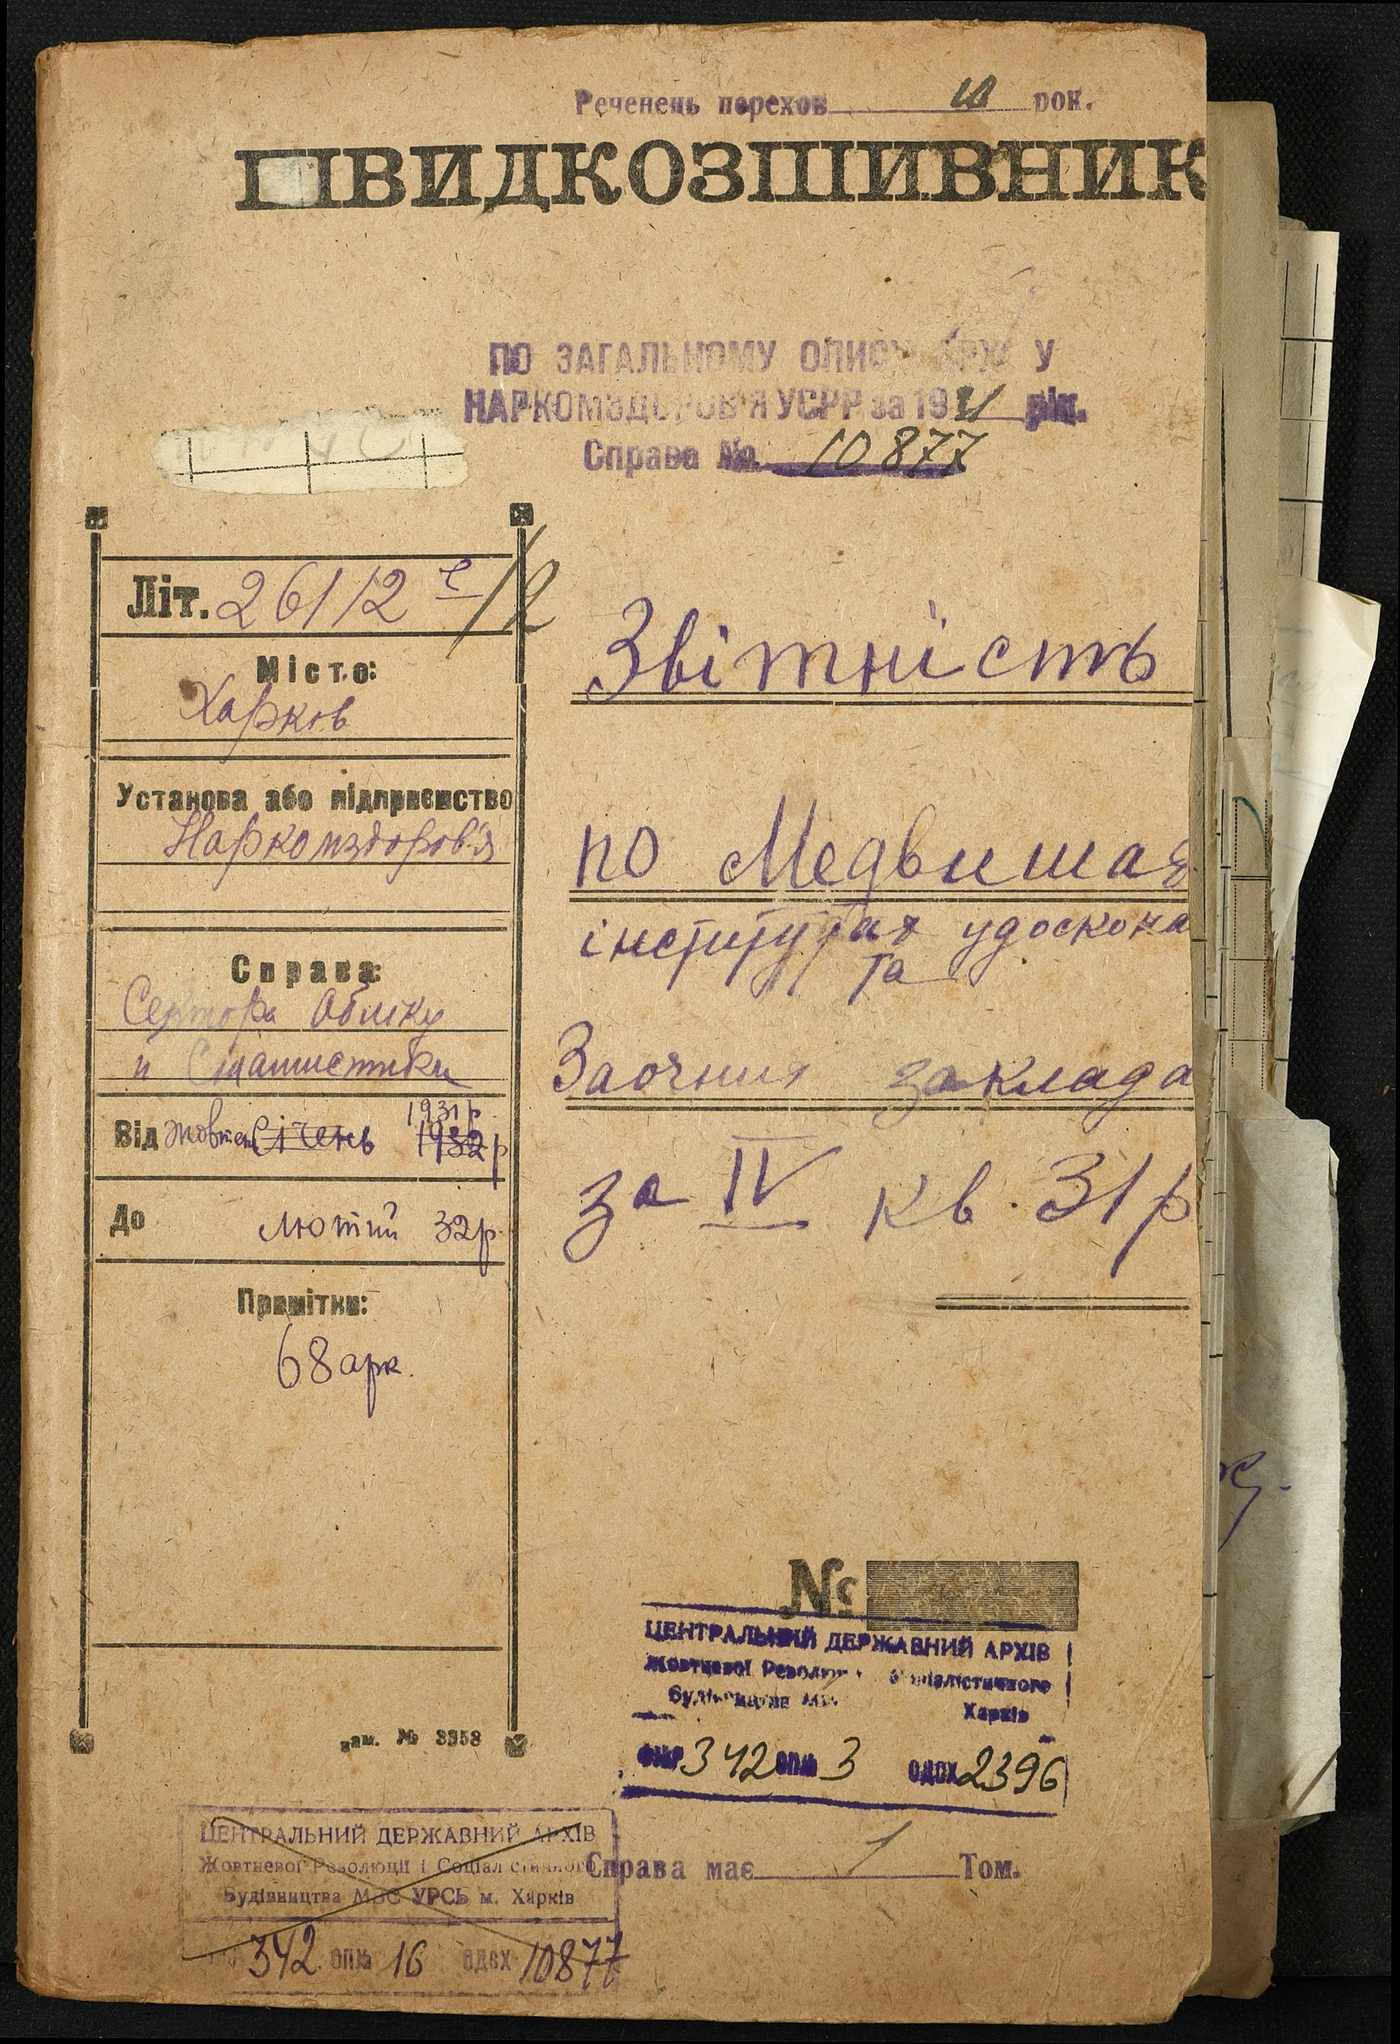 Реченець перехов 10 рок.
ШВИДКОЗШИВНИК
ПО ЗАГАЛЬНОМУ ОПИСУ АРХ У
НАРКОМЗДОРОВ'Я УСРР за 1931 рік.
Справа №. 10877
Літ. 261/2 е/2
Місто:
Харков
Установа або підприємство
Наркомздоров'я
Справа:
Сектора Обліку
и Статистики
Від жовтень Січень 1931 р. 1932 р
До лютий 32 р.
Примітки:
68 арк.
Звітність
по Медвишах
інститутах удоскона
та
Заочних заклада
за IV кв. 31 р
№
ЦЕНТРАЛЬНИЙ ДЕРЖАВНИЙ АРХІВ
Жовтневої Революц соціалістичного
Будівництва МВ Харків
ФНР 342 ОПИ 3 ОДЗХ 2396
зам. № 3358
ЦЕНТРАЛЬНИЙ ДЕРЖАВНИЙ АРХІВ
Жовтневої Революції і Соціалістичного
Будівництва МВС УРСР м. Харків
342 опи 16 одзх 10877
Справа має 1 Том.